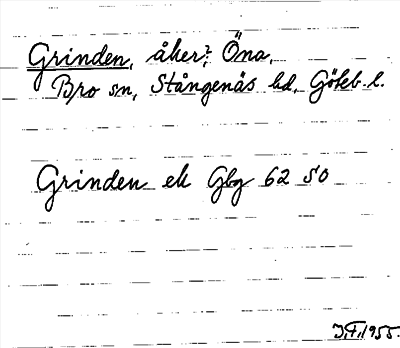 Grinden, åker?, Öna,
Bro sn, Stångenäs hd, Göteb. l.
Grinden ek Gbg 62 50
J.F. 1955.